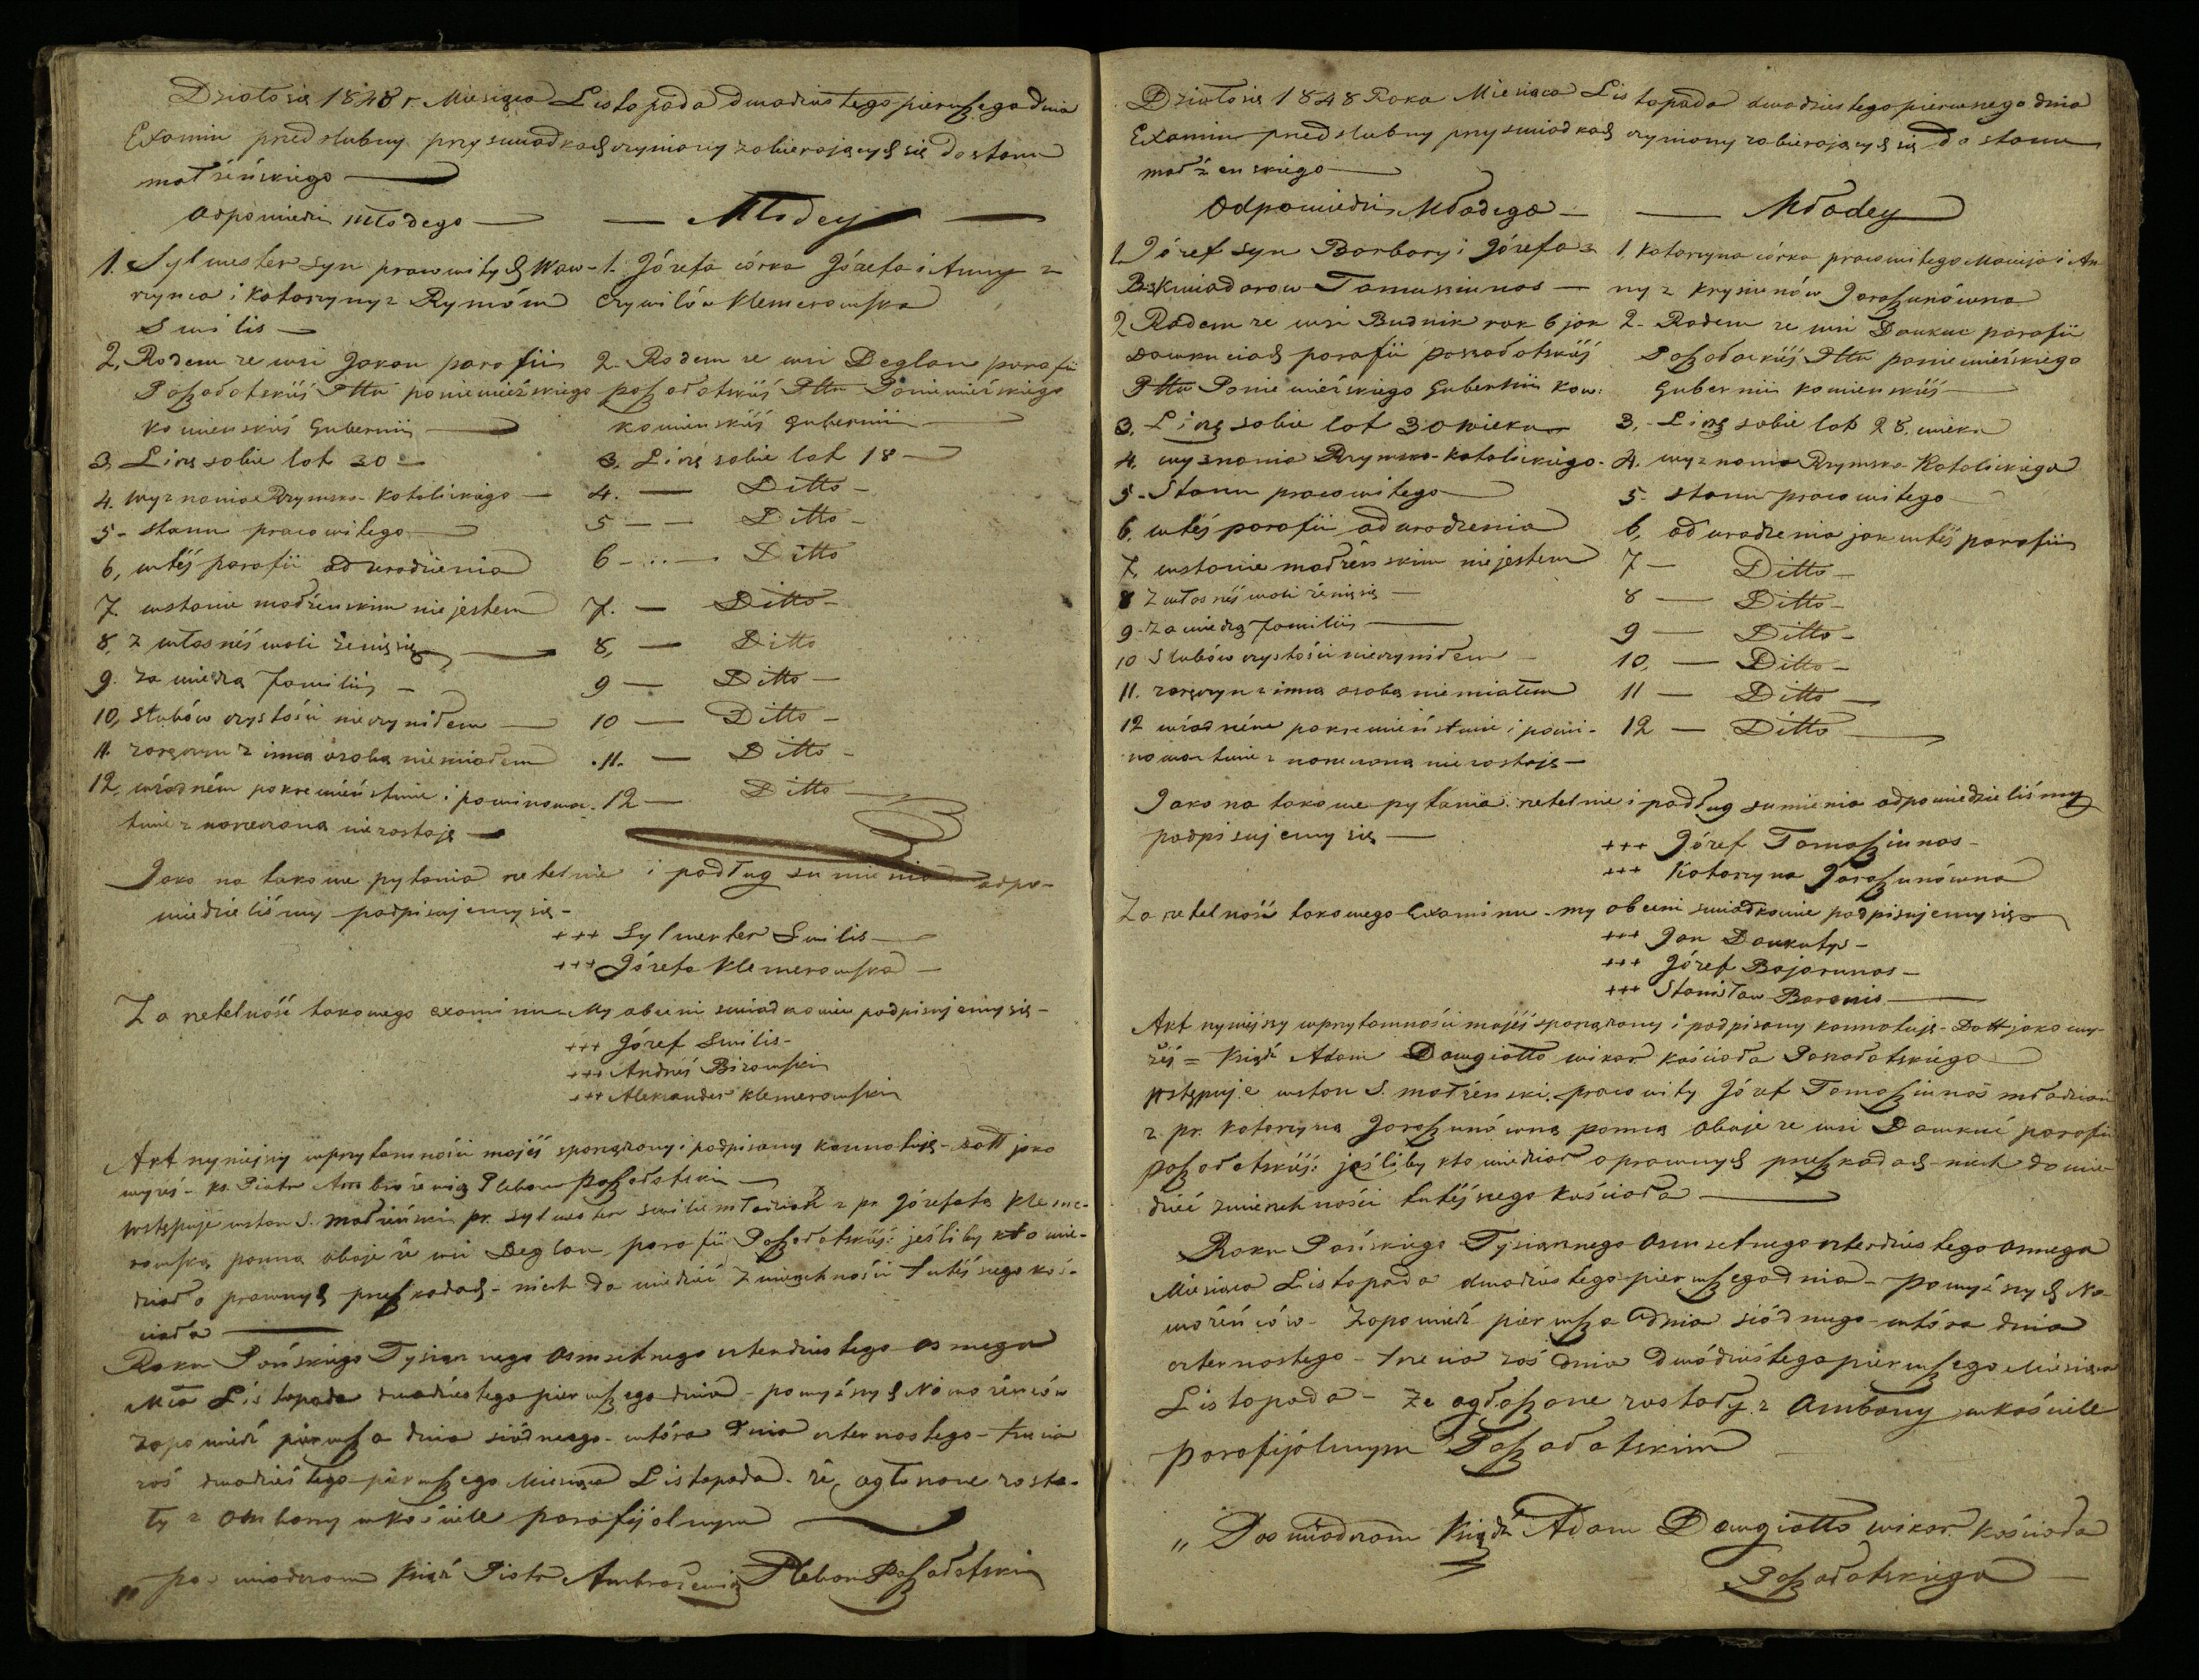 Działo się 1848 r. Miesiąca Listopada dwadziestego pierwszego dnia
Examin przedslubny przy swiadkach czyniony zabierających się do stanu
małżeńskiego
Odpowiedzi Młodego — — Młodey —
1. Sylwester syn pracowitych Waw-
rzynca i Katarzyny z Rymów
Swilis —
2. Rodem ze wsi Jakan parafii
Poszołatskiéj Pttu poniewieżskiego
kowienskiéj Gubernii —
3. Liczę sobie lat 30 —
4. wyznania Rzymsko-Katolickiego —
5 - stanu pracowitego —
6, w téj parafii od urodzienia
7. w stanie małżenskim nie jestem
8, z własnéj woli żenię się —
9. za wiedzą familii —
10, slubów czystości nie czyniłem —
11. zaręczyn z inną osobą nie miałem
12, w żadném pokrewieństwie i powinowac-
twie z narzeczoną nie zostaję —
1. Józefa córka Józefa i Anny z
Czywilów Klemerowska
2. Rodem ze wsi Deglan parafii
poszołatskiéj Pttu Poniewieżskiego
kowienskiéj gubernii —
3. Liczę sobie lat 18 —
4. — Ditto —
5 — — Ditto —
6 — .. — Ditto
7. — Ditto —
8, — Ditto
9 — Ditto —
10 — Ditto —
.11. — Ditto —
12 — Ditto —
Jako na takowe pytania rzetelnie i podług sumienia odpo-
wiedzieliśmy podpisujemy się -
+++ Sylwester Swilis —
+++ Józefa Klemerowska —
Za rzetelność takowego examinu My obecni swiadkowie podpisujemy się -
+++ Józef Swilis -
+++ Andrzéj Birowski
+++ Alexander Klemerowski
Akt nyniejszy w przytomności mojéj sporządzony i podpisany konnotuję - datt jako
wyzéj - ks. Piotr Ambrożewicz Pleban Poszołatski —
Wstępuje w stan S. małżeński pr. Sylwester Swilis młodzian z pr Józefatą Kleme-
rowską panną oboje ze wsi Deglan, parafii Poszołatskiéj: jeśliby kto wie-
dział o prawnych przeszkodach - niech da wiedzieć zwierzchności tutéjszego koś-
cioła —
Roku Pańskiego Tysiącznego Osmsetnego czterdziestego osmego
Mca Listopada dwadziestego pierwszego dnia - powyższych Nowożeńców
zapowiedź pierwsza dnia siódmego - wtóra dnia czternastego - trzecia
zaś dwadziestego pierwszego Miesiąca Listopada - że ogłoszone zosta-
ły z Ambony w kościele parafijalnym —
" Poswiadczam Ksiądz Piotr Ambrożewicz Pleban Poszołatski
Działo się 1848 Roku Miesiąca Listopada dwadziestego pierwszego dnia
Examin przedslubny przy swiadkach czyniony zabierających się do stanu
małżenskiego —
Odpowiedzi Młodego — — Młodey
1. Józef syn Barbary i Józefa z
Tamuszunas —
2 Rodem ze wsi Budnik rok 6 jak
Dowkuciach parafii poszołatskiéj
Pttu Poniewieżskiego Gubernii Kow:
3. Liczę sobie lat 30 wieku
4. wyznania Rzymsko-Katolickiego -
5 - Stanu pracowitego —
6. w téj parafii od urodzenia
7, w stanie małżeńskim nie jestem
8 Z własnéj woli żenię się —
9 - Za wiedzą familii —
10 Slubów czystości nie czyniłem —
11. zaręczyn z inną osobą nie miałem
12 w żadném pokrewieństwie i powi-
nowactwie z narzeczoną nie zostaję —
1. Katarzyna córka pracowitego Macieja i An
ny z Krysienów Jaroszunówna
2 - Rodem ze wsi Daukuc parafii
Poszołackiéj Pttu poniewieńskiego
Gubernii kowienskiéj —
3, - Liczę sobie lat 28. wieku
4. wyznania Rzymsko-Katolickiego
5 - stanu pracowitego —
6, od urodzenia jak w téj parafii
7 — Ditto —
8 — Ditto —
9 — Ditto —
10, — Ditto —
11 — Ditto —
12 — Ditto —
Jako na takowe pytania rzetelnie i podług sumienia odpowiedzieliśmy
podpisujemy się —
+++ Józef Tamoszunas -
+++ Katarzyna Jaroszunówna
Za rzetelność takowego Examinu - my obecni swiadkowie podpisujemy się
+++ Jan Daukutys -
+++ Józef Bajarunas -
+++ Stanisław Baronis —
Akt nyniejszy w przytomności mojéj sporządzony i podpisany konnotuję - Datt jako wy-
żéj = Ksiądz Adam Dowgiatto wikar. kościoła Poszołatskiego
Wstępuje w stan S. małżeński. pracowity Józef Tomoszunas młodzian
z pr. Katarzyną Jaroszunówną panną oboje ze wsi Dawkuć parafii
poszołatskiéj: jeśliby kto wiedział o prawnych przeszkodach - niech da wie-
dzieć zwierzchności tutéjszego kościoła —
Roku Pańskiego Tysiącznego Osmsetnego czterdziestego osmego
Miesiąca Listopada dwadziestego pierwszego dnia - powyższych No-
wożeńców - Zapowiedź pierwsza dnia siódmego - wtóra dnia
czternastego - trzecia zaś dnia dwódziestego pierwszego Miesiąca
Listopada - Że ogłoszone zostały z Ambony w kościele
parafijalnym Poszołatskim
" Poswiadczam Ksiądz Adam Dowgiatto wikar. Kościoła
Poszołatskiego —